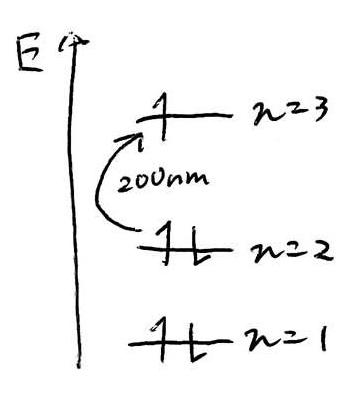 E
n=3
200nm
n=2
n=1